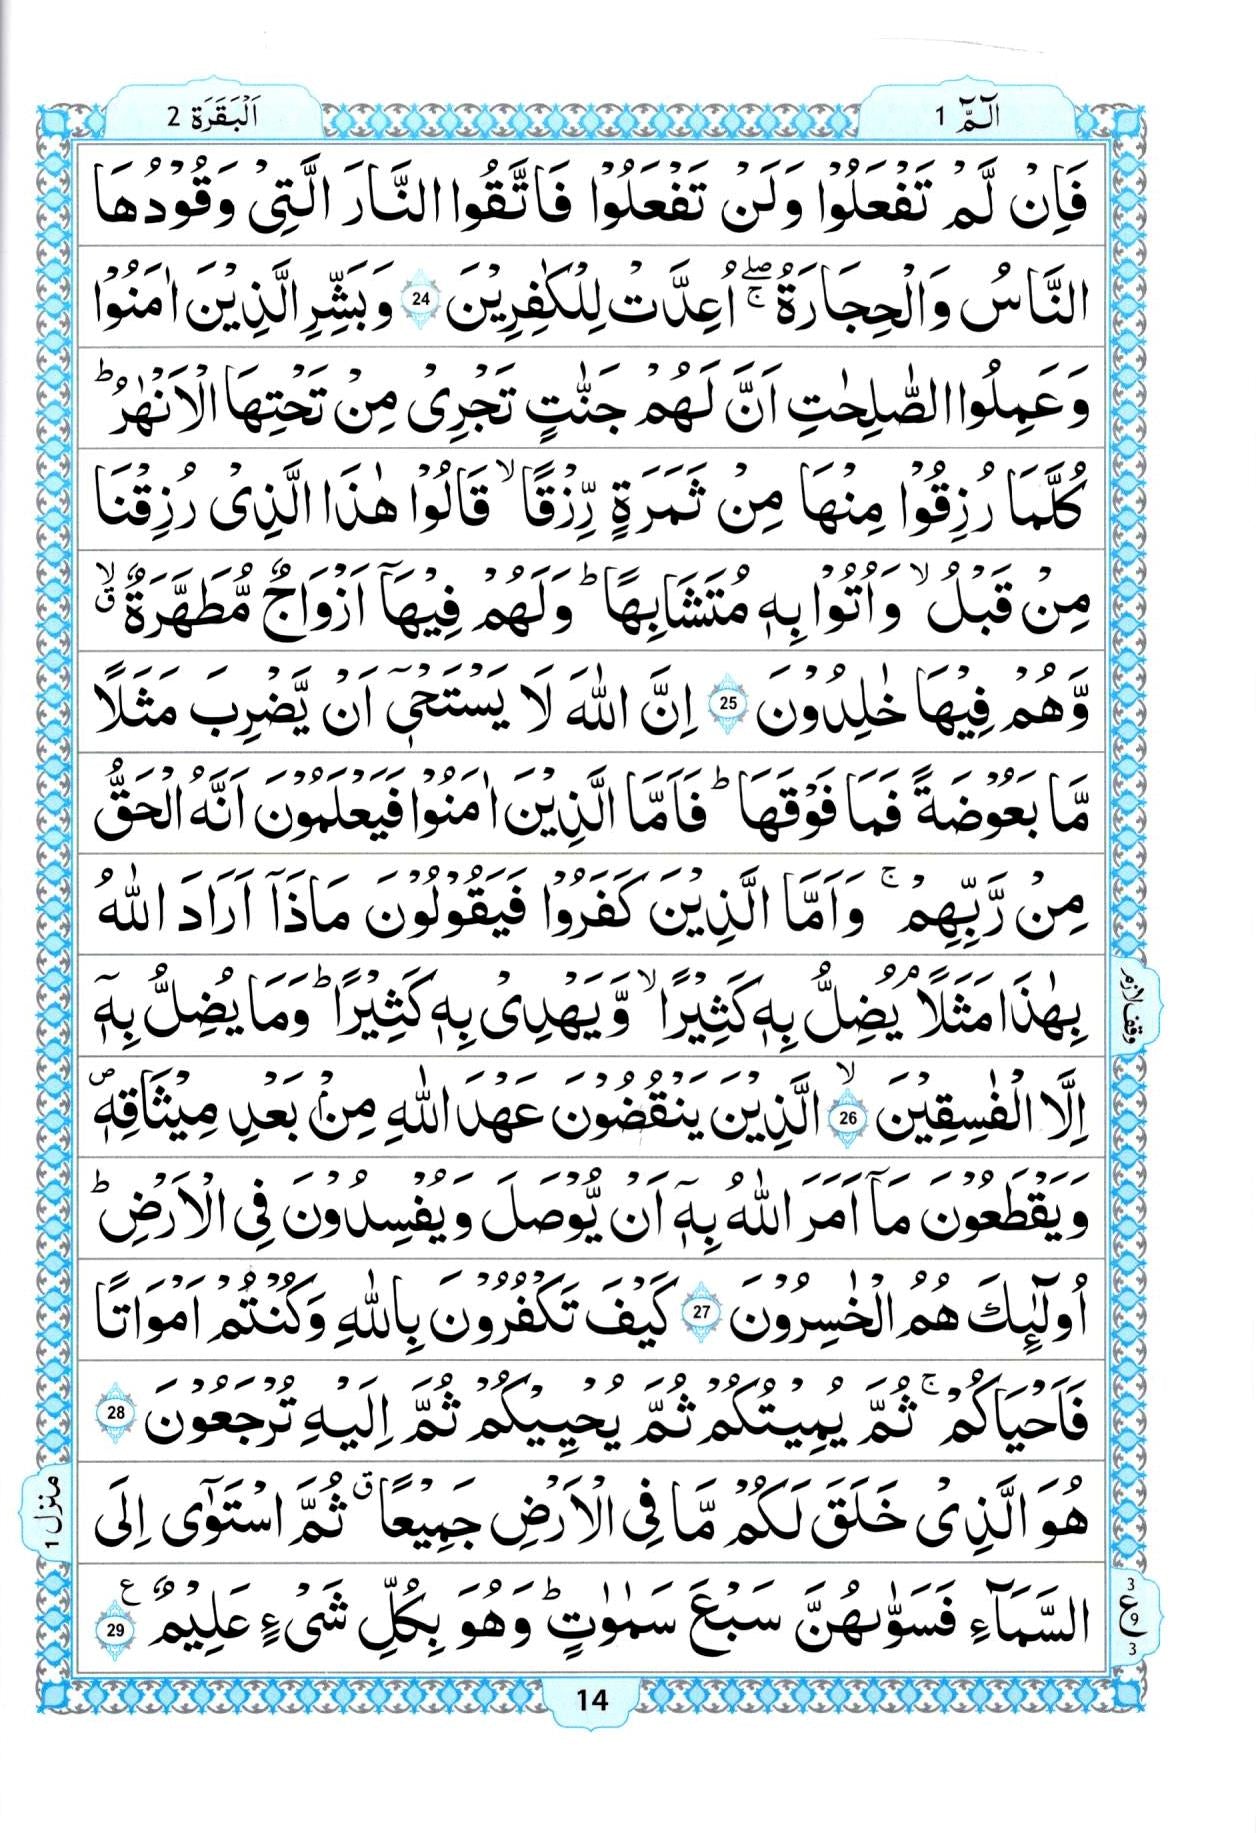 الٓمّٓ 1
اَلْبَقَرَة 2
فَاِنْ لَّمْ تَفْعَلُوْا وَلَنْ تَفْعَلُوْا فَاتَّقُوا النَّارَ الَّتِیْ وَقُوْدُهَا
النَّاسُ وَالْحِجَارَةُ ۖۚ اُعِدَّتْ لِلْكٰفِرِیْنَ 24 وَبَشِّرِ الَّذِیْنَ اٰمَنُوْا
وَعَمِلُوا الصّٰلِحٰتِ اَنَّ لَهُمْ جَنّٰتٍ تَجْرِیْ مِنْ تَحْتِهَا الْاَنْهٰرُ ؕ
كُلَّمَا رُزِقُوْا مِنْهَا مِنْ ثَمَرَةٍ رِّزْقًا ۙ قَالُوْا هٰذَا الَّذِیْ رُزِقْنَا
مِنْ قَبْلُ ۙ وَاُتُوْا بِهٖ مُتَشَابِهًا ؕ وَلَهُمْ فِیْهَاۤ اَزْوَاجٌ مُّطَهَّرَةٌ ۙۗ
وَّهُمْ فِیْهَا خٰلِدُوْنَ 25 اِنَّ اللّٰهَ لَا یَسْتَحْیٖۤ اَنْ یَّضْرِبَ مَثَلًا
مَّا بَعُوْضَةً فَمَا فَوْقَهَا ؕ فَاَمَّا الَّذِیْنَ اٰمَنُوْا فَیَعْلَمُوْنَ اَنَّهُ الْحَقُّ
مِنْ رَّبِّهِمْ ۚ وَاَمَّا الَّذِیْنَ كَفَرُوْا فَیَقُوْلُوْنَ مَاذَاۤ اَرَادَ اللّٰهُ
بِهٰذَا مَثَلًا ۘ یُضِلُّ بِهٖ كَثِیْرًا ۙ وَّیَهْدِیْ بِهٖ كَثِیْرًا ؕ وَمَا یُضِلُّ بِهٖۤ
وقف لازم
اِلَّا الْفٰسِقِیْنَ ۙ 26 الَّذِیْنَ یَنْقُضُوْنَ عَهْدَ اللّٰهِ مِنْۢ بَعْدِ مِیْثَاقِهٖ ۪
وَیَقْطَعُوْنَ مَاۤ اَمَرَ اللّٰهُ بِهٖۤ اَنْ یُّوْصَلَ وَیُفْسِدُوْنَ فِی الْاَرْضِ ؕ
اُولٰٓئِكَ هُمُ الْخٰسِرُوْنَ 27 كَیْفَ تَكْفُرُوْنَ بِاللّٰهِ وَكُنْتُمْ اَمْوَاتًا
فَاَحْیَاكُمْ ۚ ثُمَّ یُمِیْتُكُمْ ثُمَّ یُحْیِیْكُمْ ثُمَّ اِلَیْهِ تُرْجَعُوْنَ 28
هُوَ الَّذِیْ خَلَقَ لَكُمْ مَّا فِی الْاَرْضِ جَمِیْعًا ۗ ثُمَّ اسْتَوٰۤی اِلَی
منزل 1
السَّمَآءِ فَسَوّٰىهُنَّ سَبْعَ سَمٰوٰتٍ ؕ وَهُوَ بِكُلِّ شَیْءٍ عَلِیْمٌ ع 29
3
ع
9
3
14